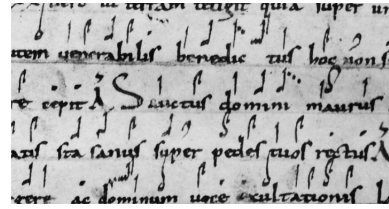 terram tetigit quia super
utem venerabilis benedic tus hoc non s
re cepit A Sanctus domini maurus
atis sta sanus super pedes tuos rectus A
gere ac dominum voce exultationis